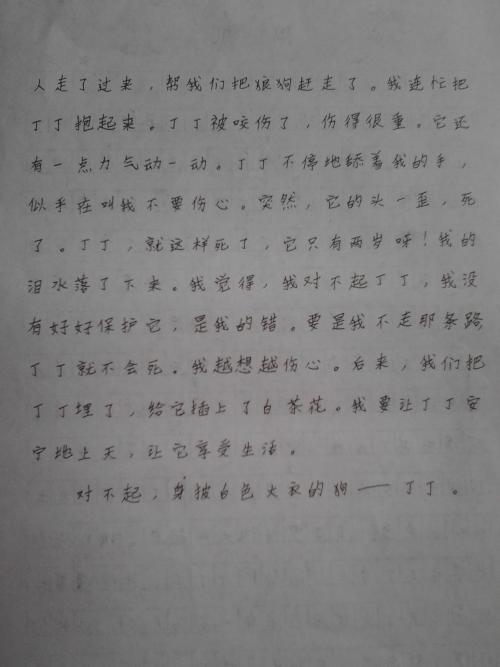 人走了过来，帮我们把狼狗赶走了。我连忙把
丁丁抱起来。丁丁被咬伤了，伤得很重。它还
有一点力气动一动。丁丁不停地舔着我的手，
似乎在叫我不要伤心。突然，它的头一歪，死
了。丁丁，就这样死了，它只有两岁呀！我的
泪水落了下来。我觉得，我对不起丁丁，我没
有好好保护它，是我的错。要是我不走那条路，
丁丁就不会死。我越想越伤心。后来，我们把
丁丁埋了，给它插上了白茶花。我要让丁丁安
宁地上天，让它享受生活。
对不起，身披白色大衣的狗——丁丁。